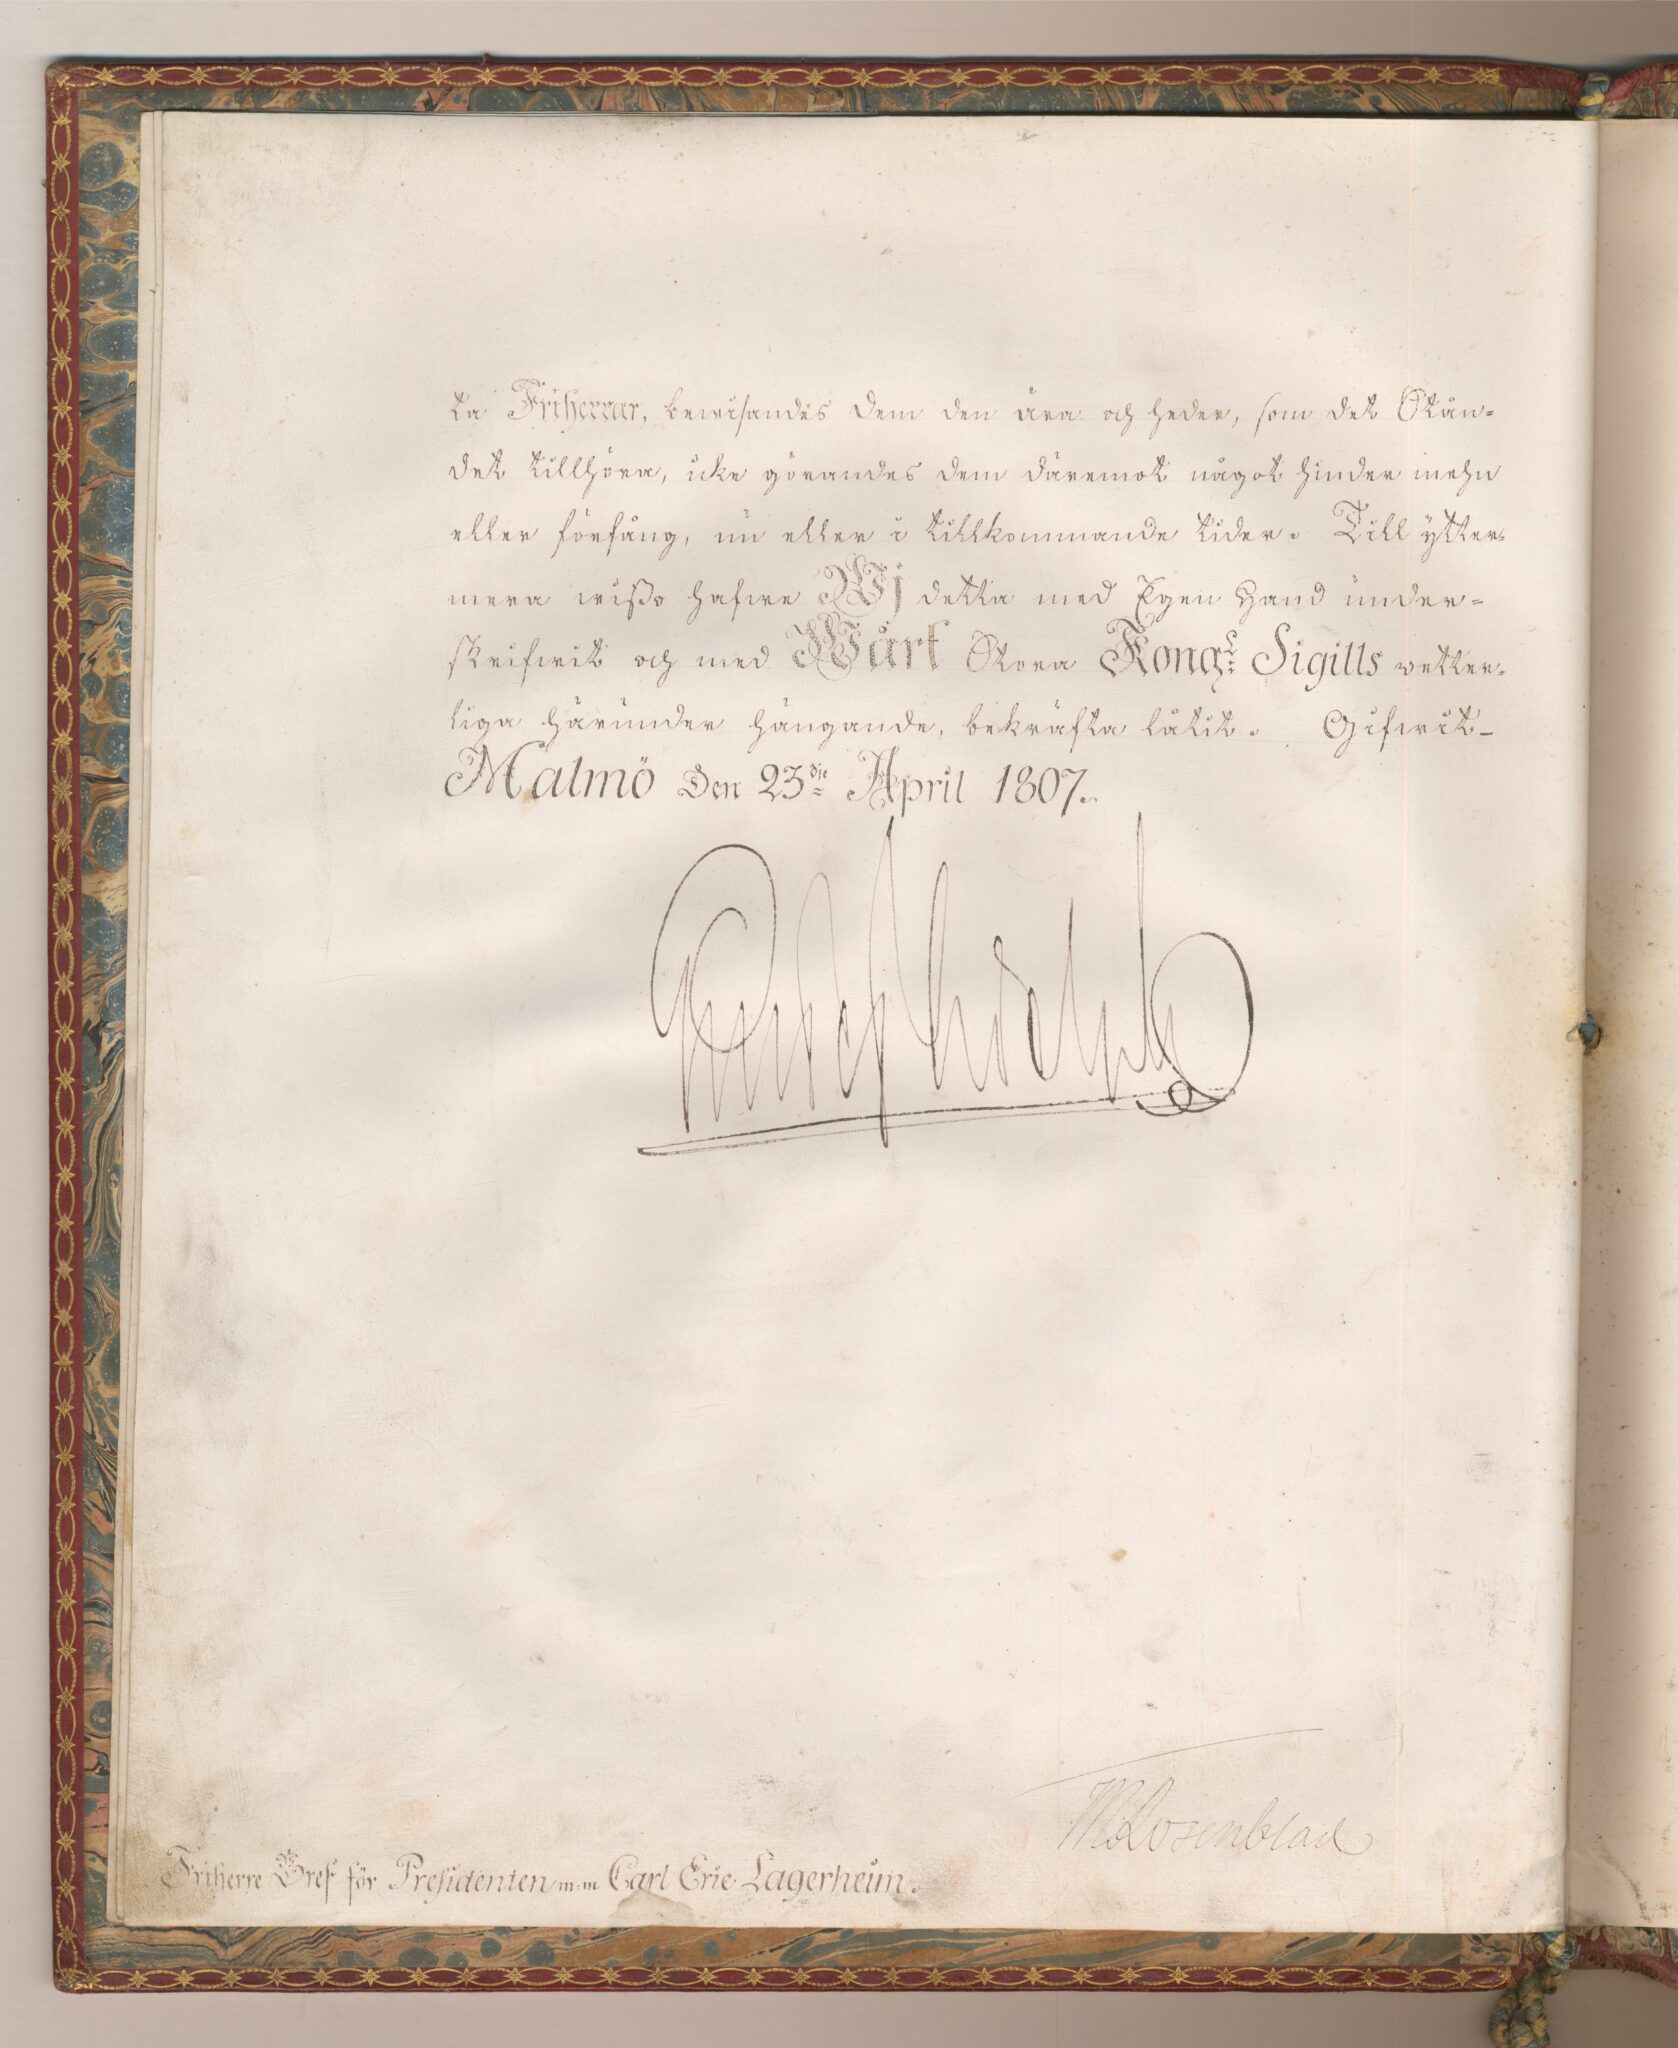 ta Friherrar, bewisandes dem den ära och heder, som det Stån-
det tillhöra, icke görandes dem däremot något hinder mehn
eller förfång, nu eller i tillkommande tider. Till ytter-
mera wißo hafwe Wj detta med Egen Hand under-
skrifwit och med Wårt Stora Kongl. Sigills wetter-
liga härunder hängande, bekräfta låtit. Gifwit-
Malmö Den 23dje April 1807.
Gustaf Adolph
M Rosenblad
Friherre Bref för Presidenten m.m Carl Eric Lagerheim.